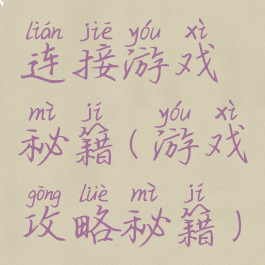 lián jiē yóu xì
连接游戏
mì jí yóu xì
秘籍(游戏
gōng lüè mì jí
攻略秘籍)